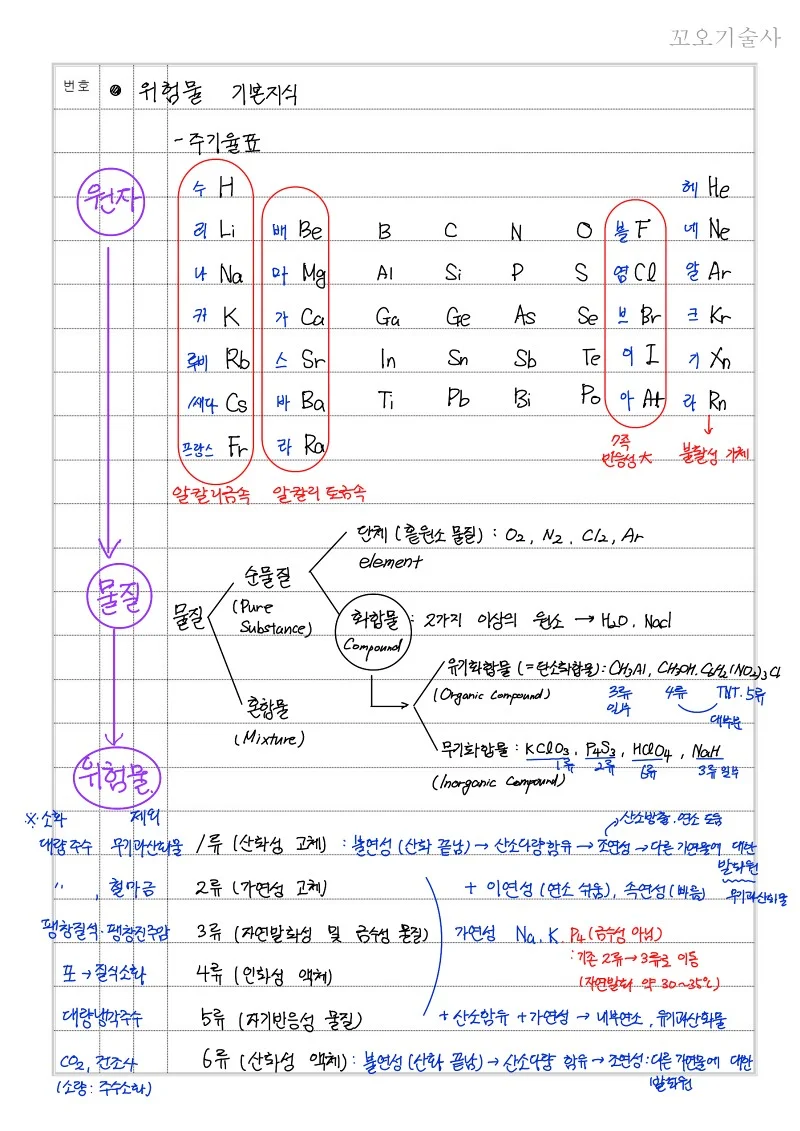 꼬오기술사
번호 위험물 기본지식
- 주기율표
원자
수 H 헤 He
리 Li 배 Be B C N O 불 F 네 Ne
나 Na 마 Mg Al Si P S 염 Cl 알 Ar
카 K 가 Ca Ga Ge As Se 브 Br 크 Kr
루비 Rb 스 Sr In Sn Sb Te 이 I 기 Xn
Cs 바 Ba Ti Pb Bi Po 아 At 라 Rn
프랑스 Fr 라 Ra 7족 반응성 大 불활성 기체
알칼리금속 알칼리 토금속
단체 (홑원소 물질) : O2, N2, Cl2, Ar
element
물질 물질
순물질
(Pure Substance)
화합물 : 2가지 이상의 원소 → H2O, Nacl
Compound
유기화합물 (= 탄소화합물) : CH3Al, CH3OH,
(Organic Compound) 3류 일부 4류 TNT. 5류
대부분
혼합물
(Mixture)
무기화합물 : KClO3, P4S3, HClO4, NaH
(Inorganic Compound) 1류 2류 6류 3류 일부
위험물
※ 소화 제외
산소방출·연소 도움
대량주수 무기과산화물 1류 (산화성 고체) : 불연성 (산화 끝남) → 산소다량함유 → 조연성 → 다른 가연물에 대한 발화원
〃 , 철마금 2류 (가연성 고체) + 이연성 (연소 쉬움), 속연성 (빠름) 무기과산화물
팽창질석·팽창진주암 3류 (자연발화성 및 금수성 물질) 가연성 Na, K, P4 (금수성 아님)
: 기존 2류 → 3류로 이동
포 → 질식소화 4류 (인화성 액체) (자연발화 약 30~35℃)
대량냉각주수 5류 (자기반응성 물질) + 산소함유 + 가연성 → 내부연소, 유기과산화물
CO2, 건조사 6류 (산화성 액체) : 불연성 (산화 끝남) → 산소다량 함유 → 조연성 : 다른 가연물에 대한
(소량 : 주수소화) 발화원